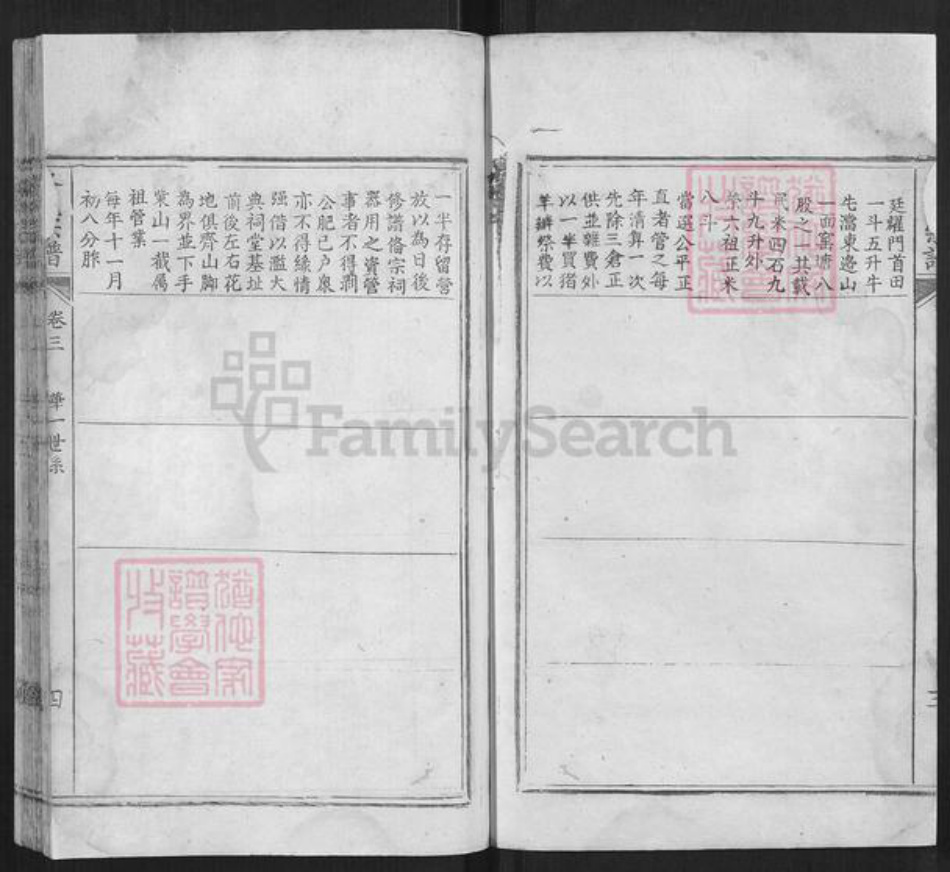 廷耀門首田
一斗五升牛
屯濡東邊山
一面葉塘八
股之一共載
民米四石九
斗九升外
祭六祖正米
八斗
當選公平正
直者管之每
年清算一次
先除三倉正
供並雜費外
以一半買猪
羊辦祭費以
一半存留營
放以為日後
修譜俻宗祠
器用之資營
事者不得剥
公肥已户衆
亦不得絲情
强借以濫大
典祠堂基址
前後左右花
地俱齊山脚
為界並下手
紫山一截属
祖管業
每年十一月
初八分胙
宗譜
卷三
華一世系
四
三
猶他家
譜學會
收藏
猶他家
譜學會
收藏
FamilySearch